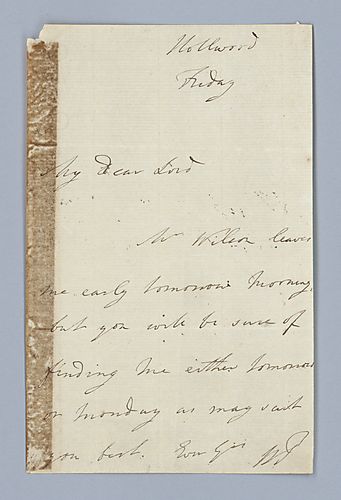 Hollwood
Friday
My Dear Lord
Mr Wilson leaves
me early tomorrow morning,
but you will be sure of
finding me either tomorrow
or monday as may suit
you best. Ever Yrs